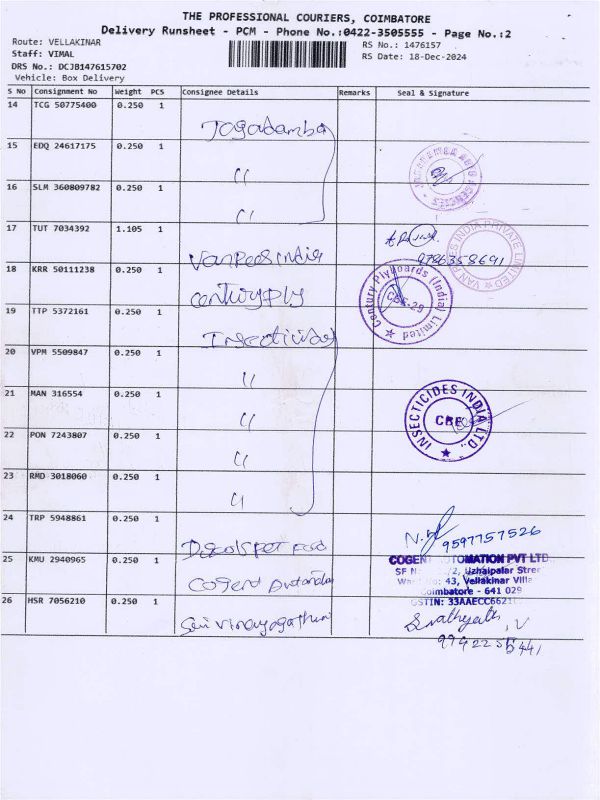 THE PROFESSIONAL COURIERS, COIMBATORE
Delivery Runsheet - PCM - Phone No.:0422-3505555 - Page No.:2
Route: VELLAKINAR
RS No.: 1476157
Staff: VIMAL
RS Date: 18-Dec-2024
DRS No.: DCJB147615702
Vehicle: Box Delivery
S No Consignment No Weight PCS Consignee Details Remarks Seal & Signature
14 TCG 50775400 0.250 1
Jagadamba
15 EDQ 24617175 0.250 1
"
16 SLM 360809782 0.250 1
"
17 TUT 7034392 1.105 1
VAN PEES INDIA PRIVATE LIMITED
Vanpees India
9786358691
18 KRR 50111238 0.250 1
Century Plyboards (India) Limited
CBE-29
centuryply
19 TTP 5372161 0.250 1
20 VPM 5509847 0.250 1
"
21 MAN 316554 0.250 1
INSECTICIDES INDIA LTD.
CBE
"
22 PON 7243807 0.250 1
"
23 RMD 3018060 0.250 1
"
24 TRP 5948861 0.250 1
9597757526
25 KMU 2940965 0.250 1
COGENT AUTOMATION PVT LTD
SF N /2, Uzhaipalar Stree
No: 43, Vellakinar Villa
Coimbatore - 641 029
GSTIN: 33AAECC6621
Cogent
26 HSR 7056210 0.250 1